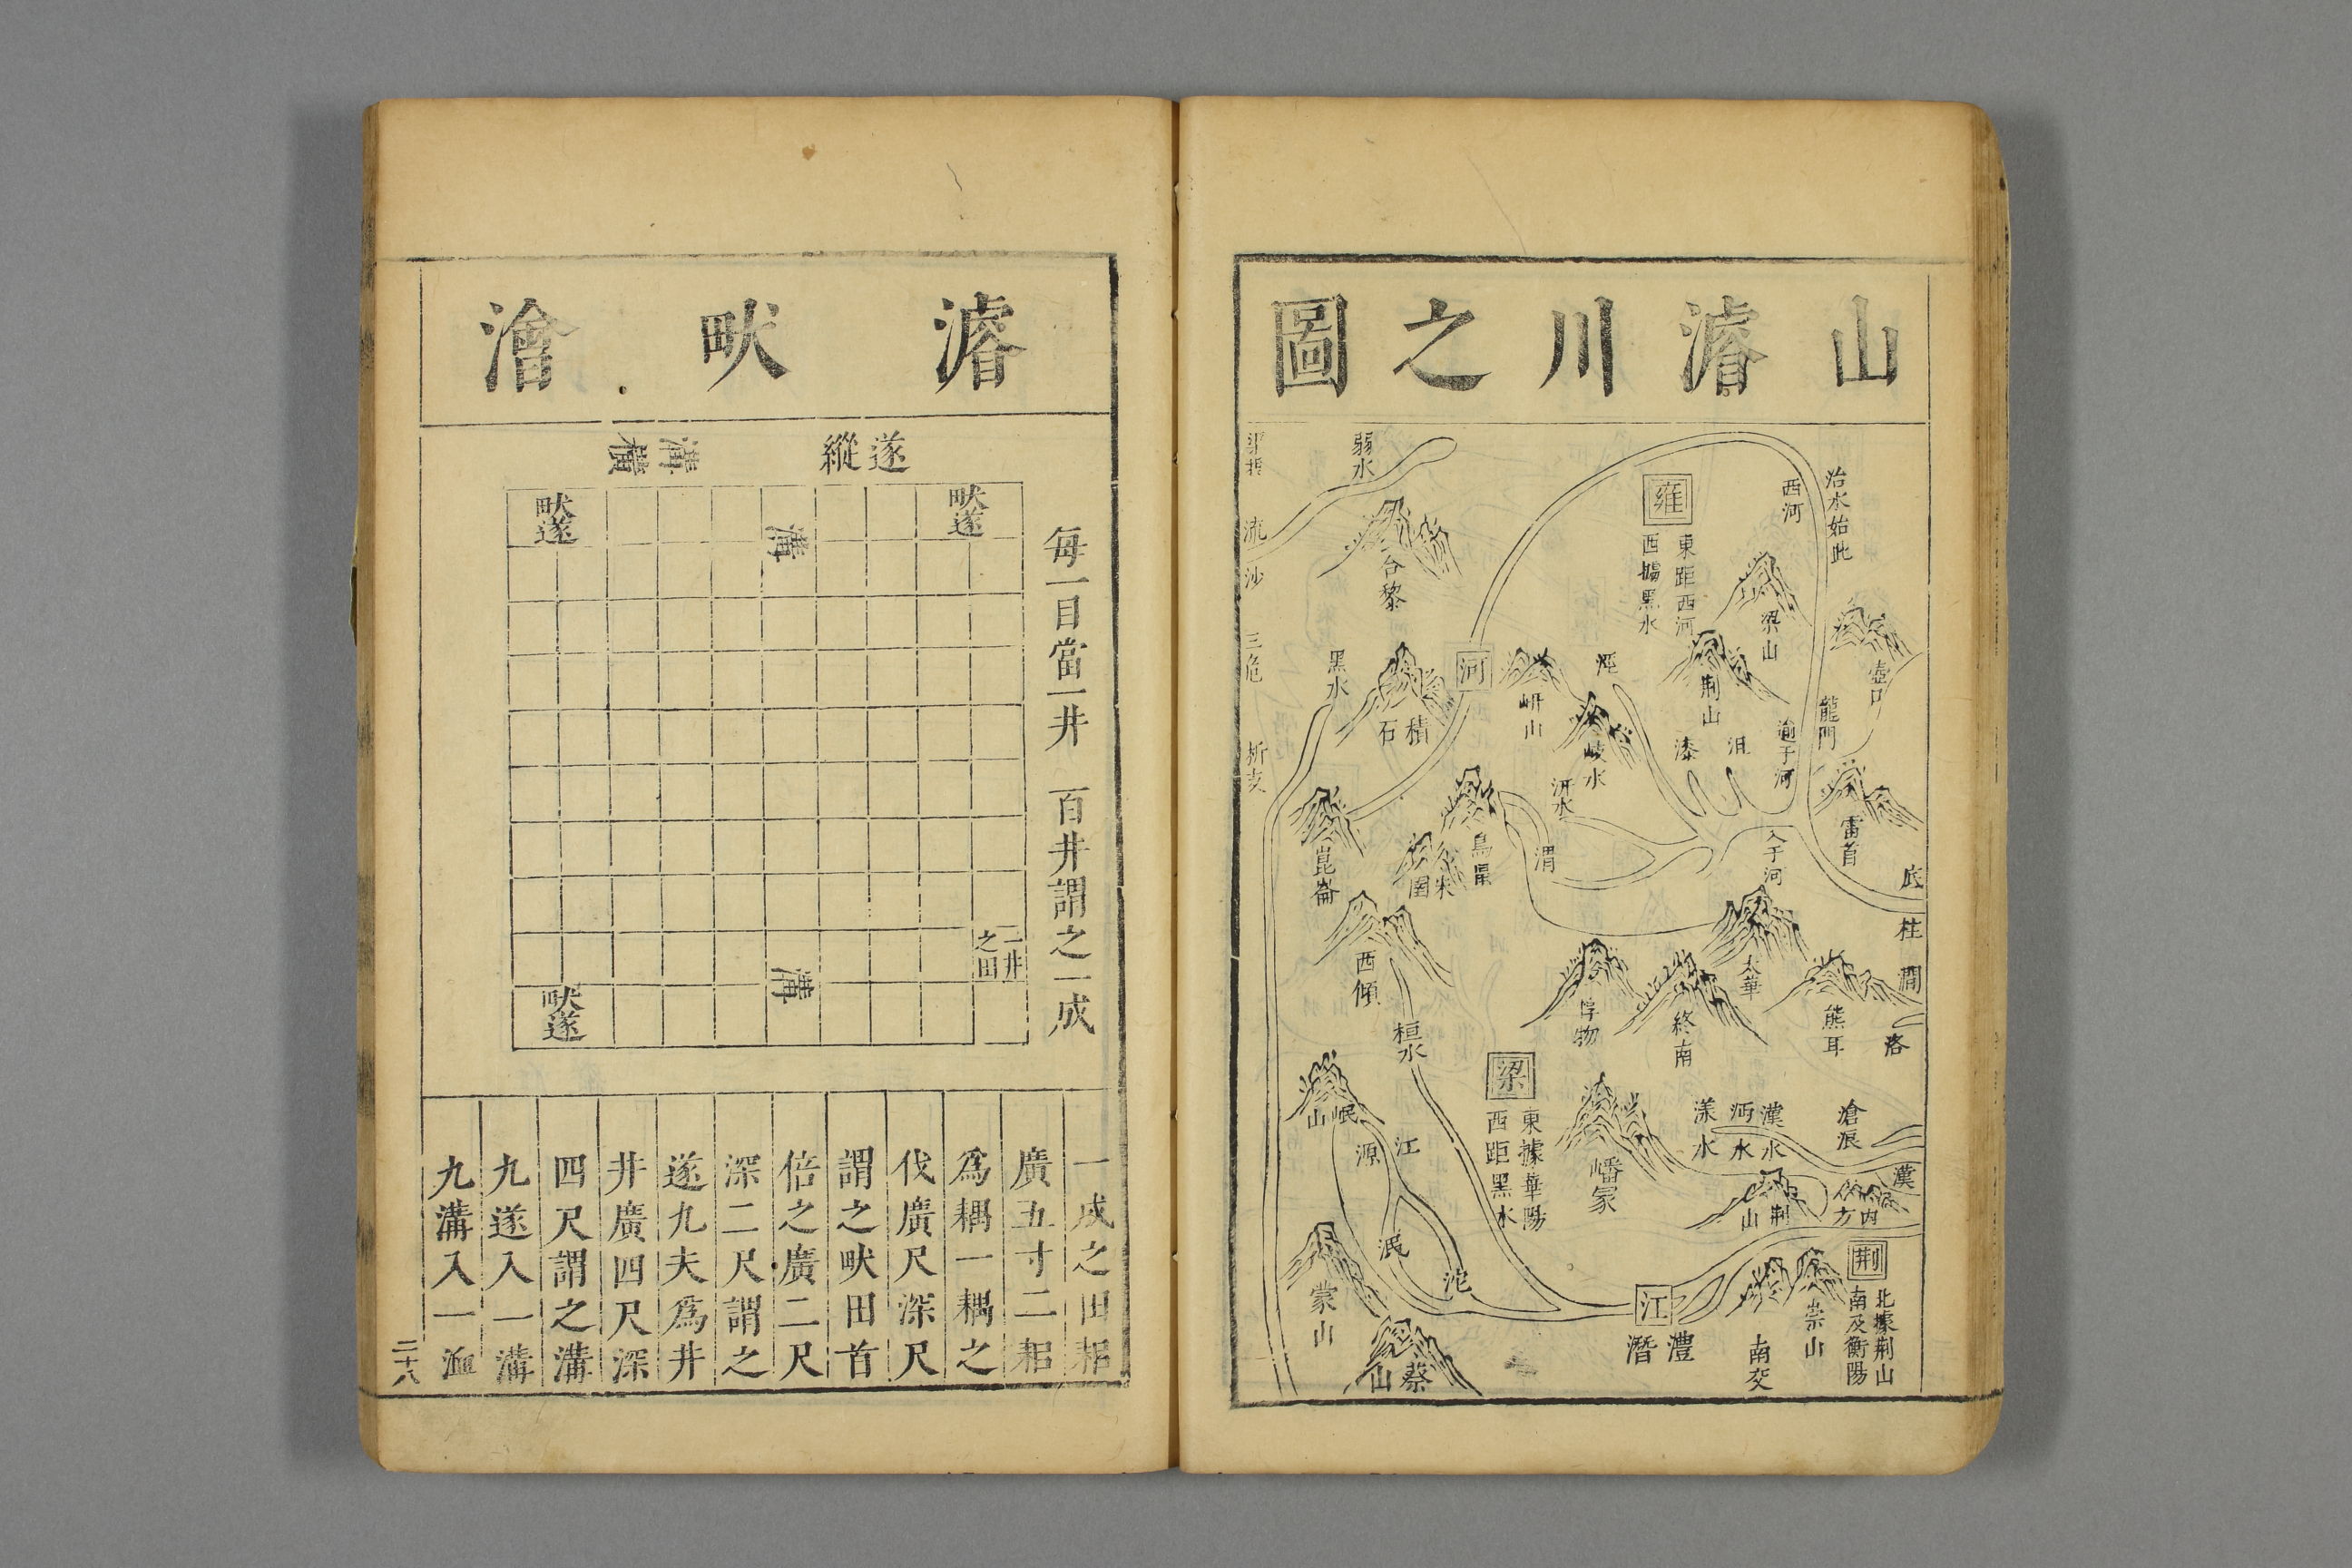 山濬川之圖
治水始此
西河
雍
東距西河
西據黑水
弱水
流沙
三危
黑水
合黎
梁山
壺口
荆山
龍門
涇
岍山
河
積石
岐水
漆
沮
渝于河
汧水
雷首
入于河
渭
鳥鼠
朱圉
崑崙
厎柱
西傾
太華
惇物
終南
熊耳
澗
洛
桓水
梁
東據華陽
西距黑水
岷山
江源
嶓冢
漾水
沔水
漢水
滄浪
漢
荆山
內方
荆
北據荆山
南及衡陽
岷
沱
蒙山
蔡山
江
澧
潛
崇山
南交
濬畎澮
遂縱
溝橫
畎遂
溝
畎遂
每一目當一井　百井謂之一成
一井之田
溝
畎遂
一成之田耜
廣五寸二耜
爲耦一耦之
伐廣尺深尺
謂之畎田首
倍之廣二尺
深二尺謂之
遂九夫爲井
井廣四尺深
四尺謂之溝
九遂入一溝
九溝入一洫
二十八